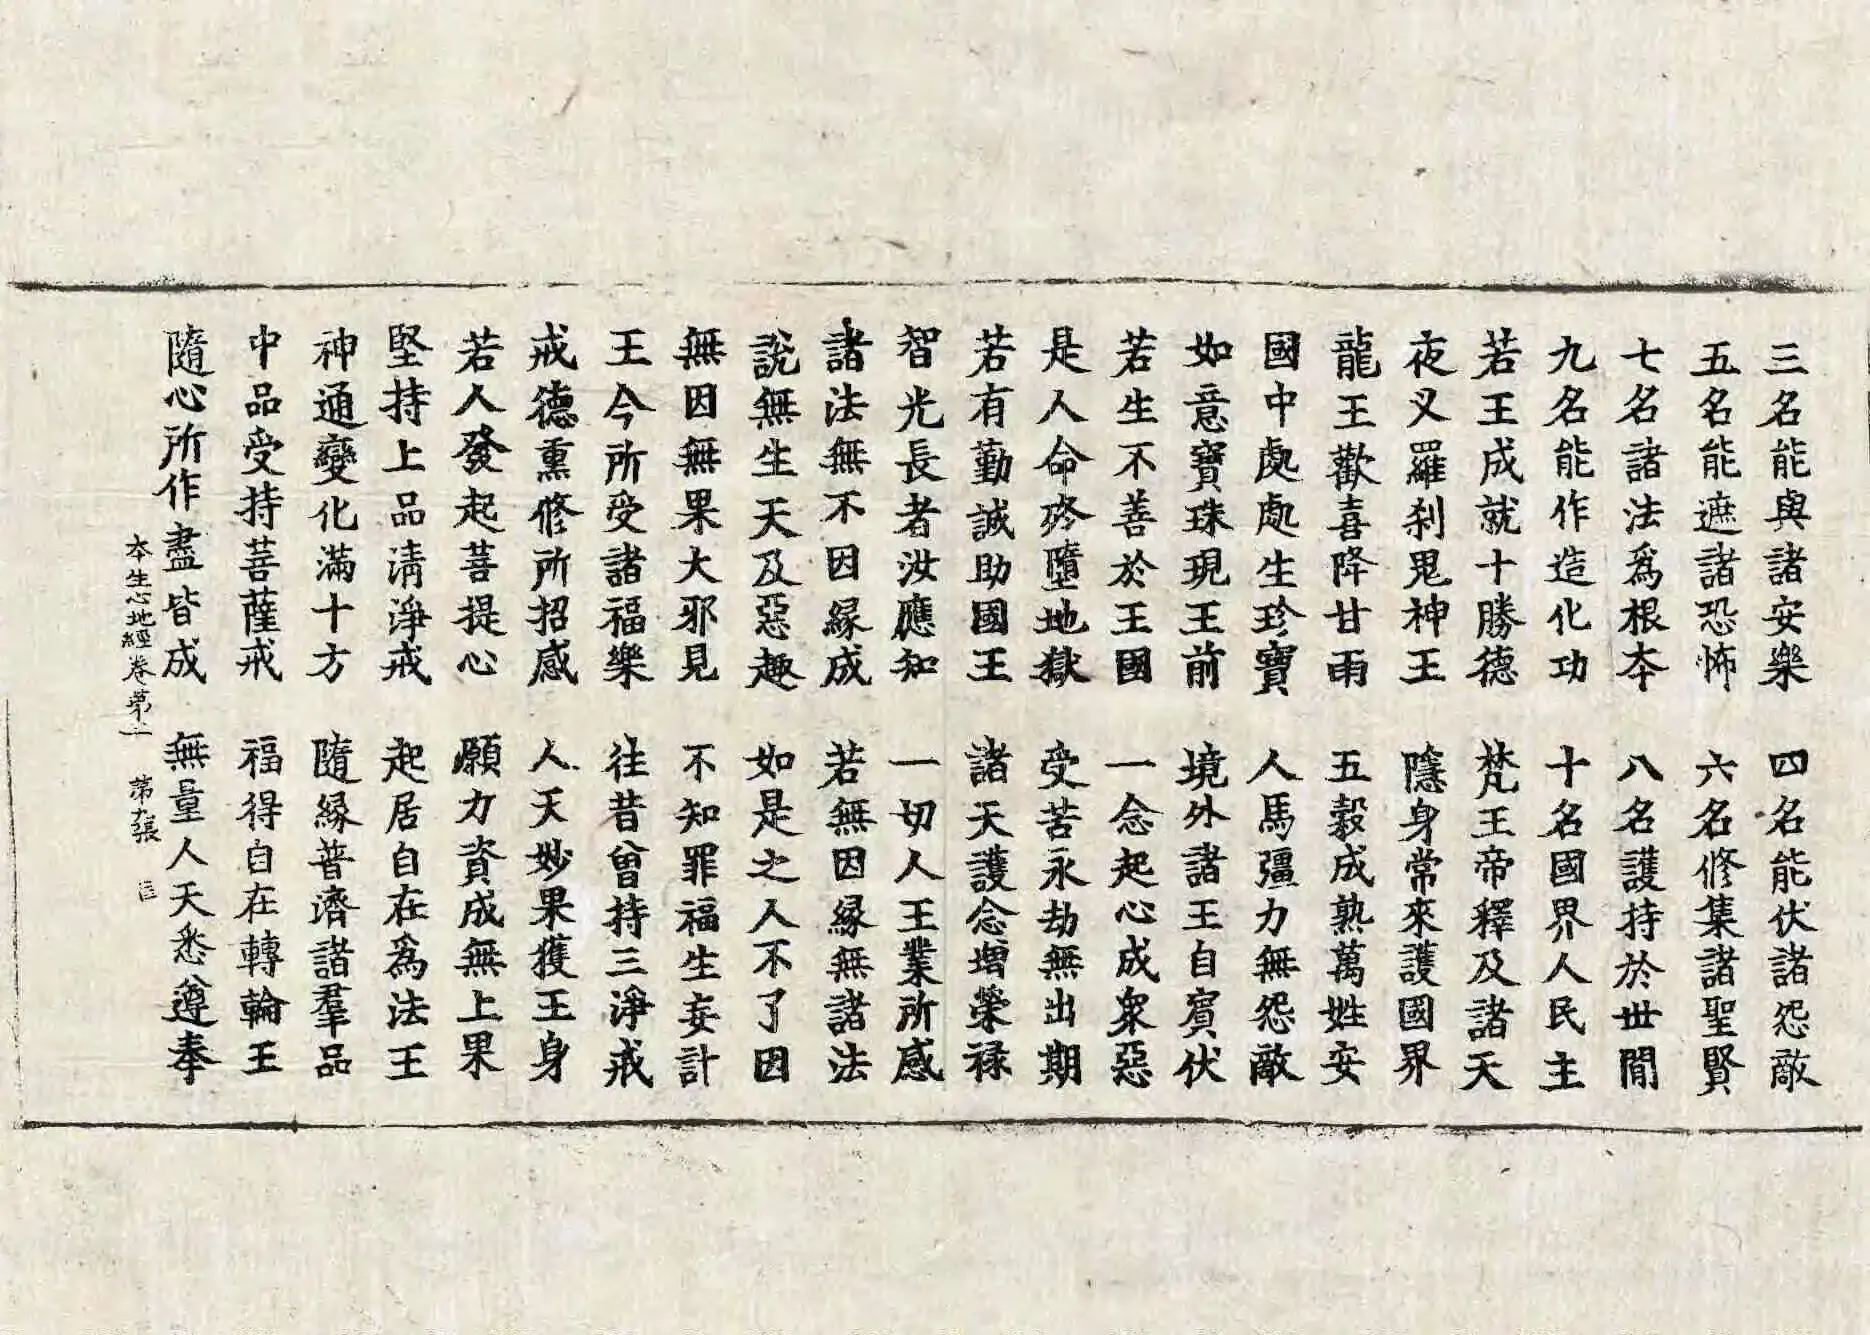 三名能與諸安樂　四名能伏諸怨敵
五名能遮諸恐怖　六名修集諸聖賢
七名諸法爲根本　八名護持於世閒
九名能作造化功　十名國界人民主
若王成就十勝德　梵王帝釋及諸天
夜叉羅刹鬼神王　隱身常來護國界
龍王歡喜降甘雨　五穀成熟萬姓安
國中處處生珍寶　人馬彊力無怨敵
如意寶珠現王前　境外諸王自賓伏
若生不善於王國　一念起心成衆惡
是人命終墮地獄　受苦永劫無出期
若有勤誠助國王　諸天護念增榮祿
智光長者汝應知　一切人王業所感
諸法無不因緣成　若無因緣無諸法
說無生天及惡趣　如是之人不了因
無因無果大邪見　不知罪福生妄計
王今所受諸福樂　往昔曾持三淨戒
戒德熏修所招感　人天妙果獲王身
若人發起菩提心　願力資成無上果
堅持上品淸淨戒　起居自在爲法王
神通變化滿十方　隨緣普濟諸羣品
中品受持菩薩戒　福得自在轉輪王
隨心所作盡皆成　無量人天悉遵奉
本生心地經卷第二　第九張